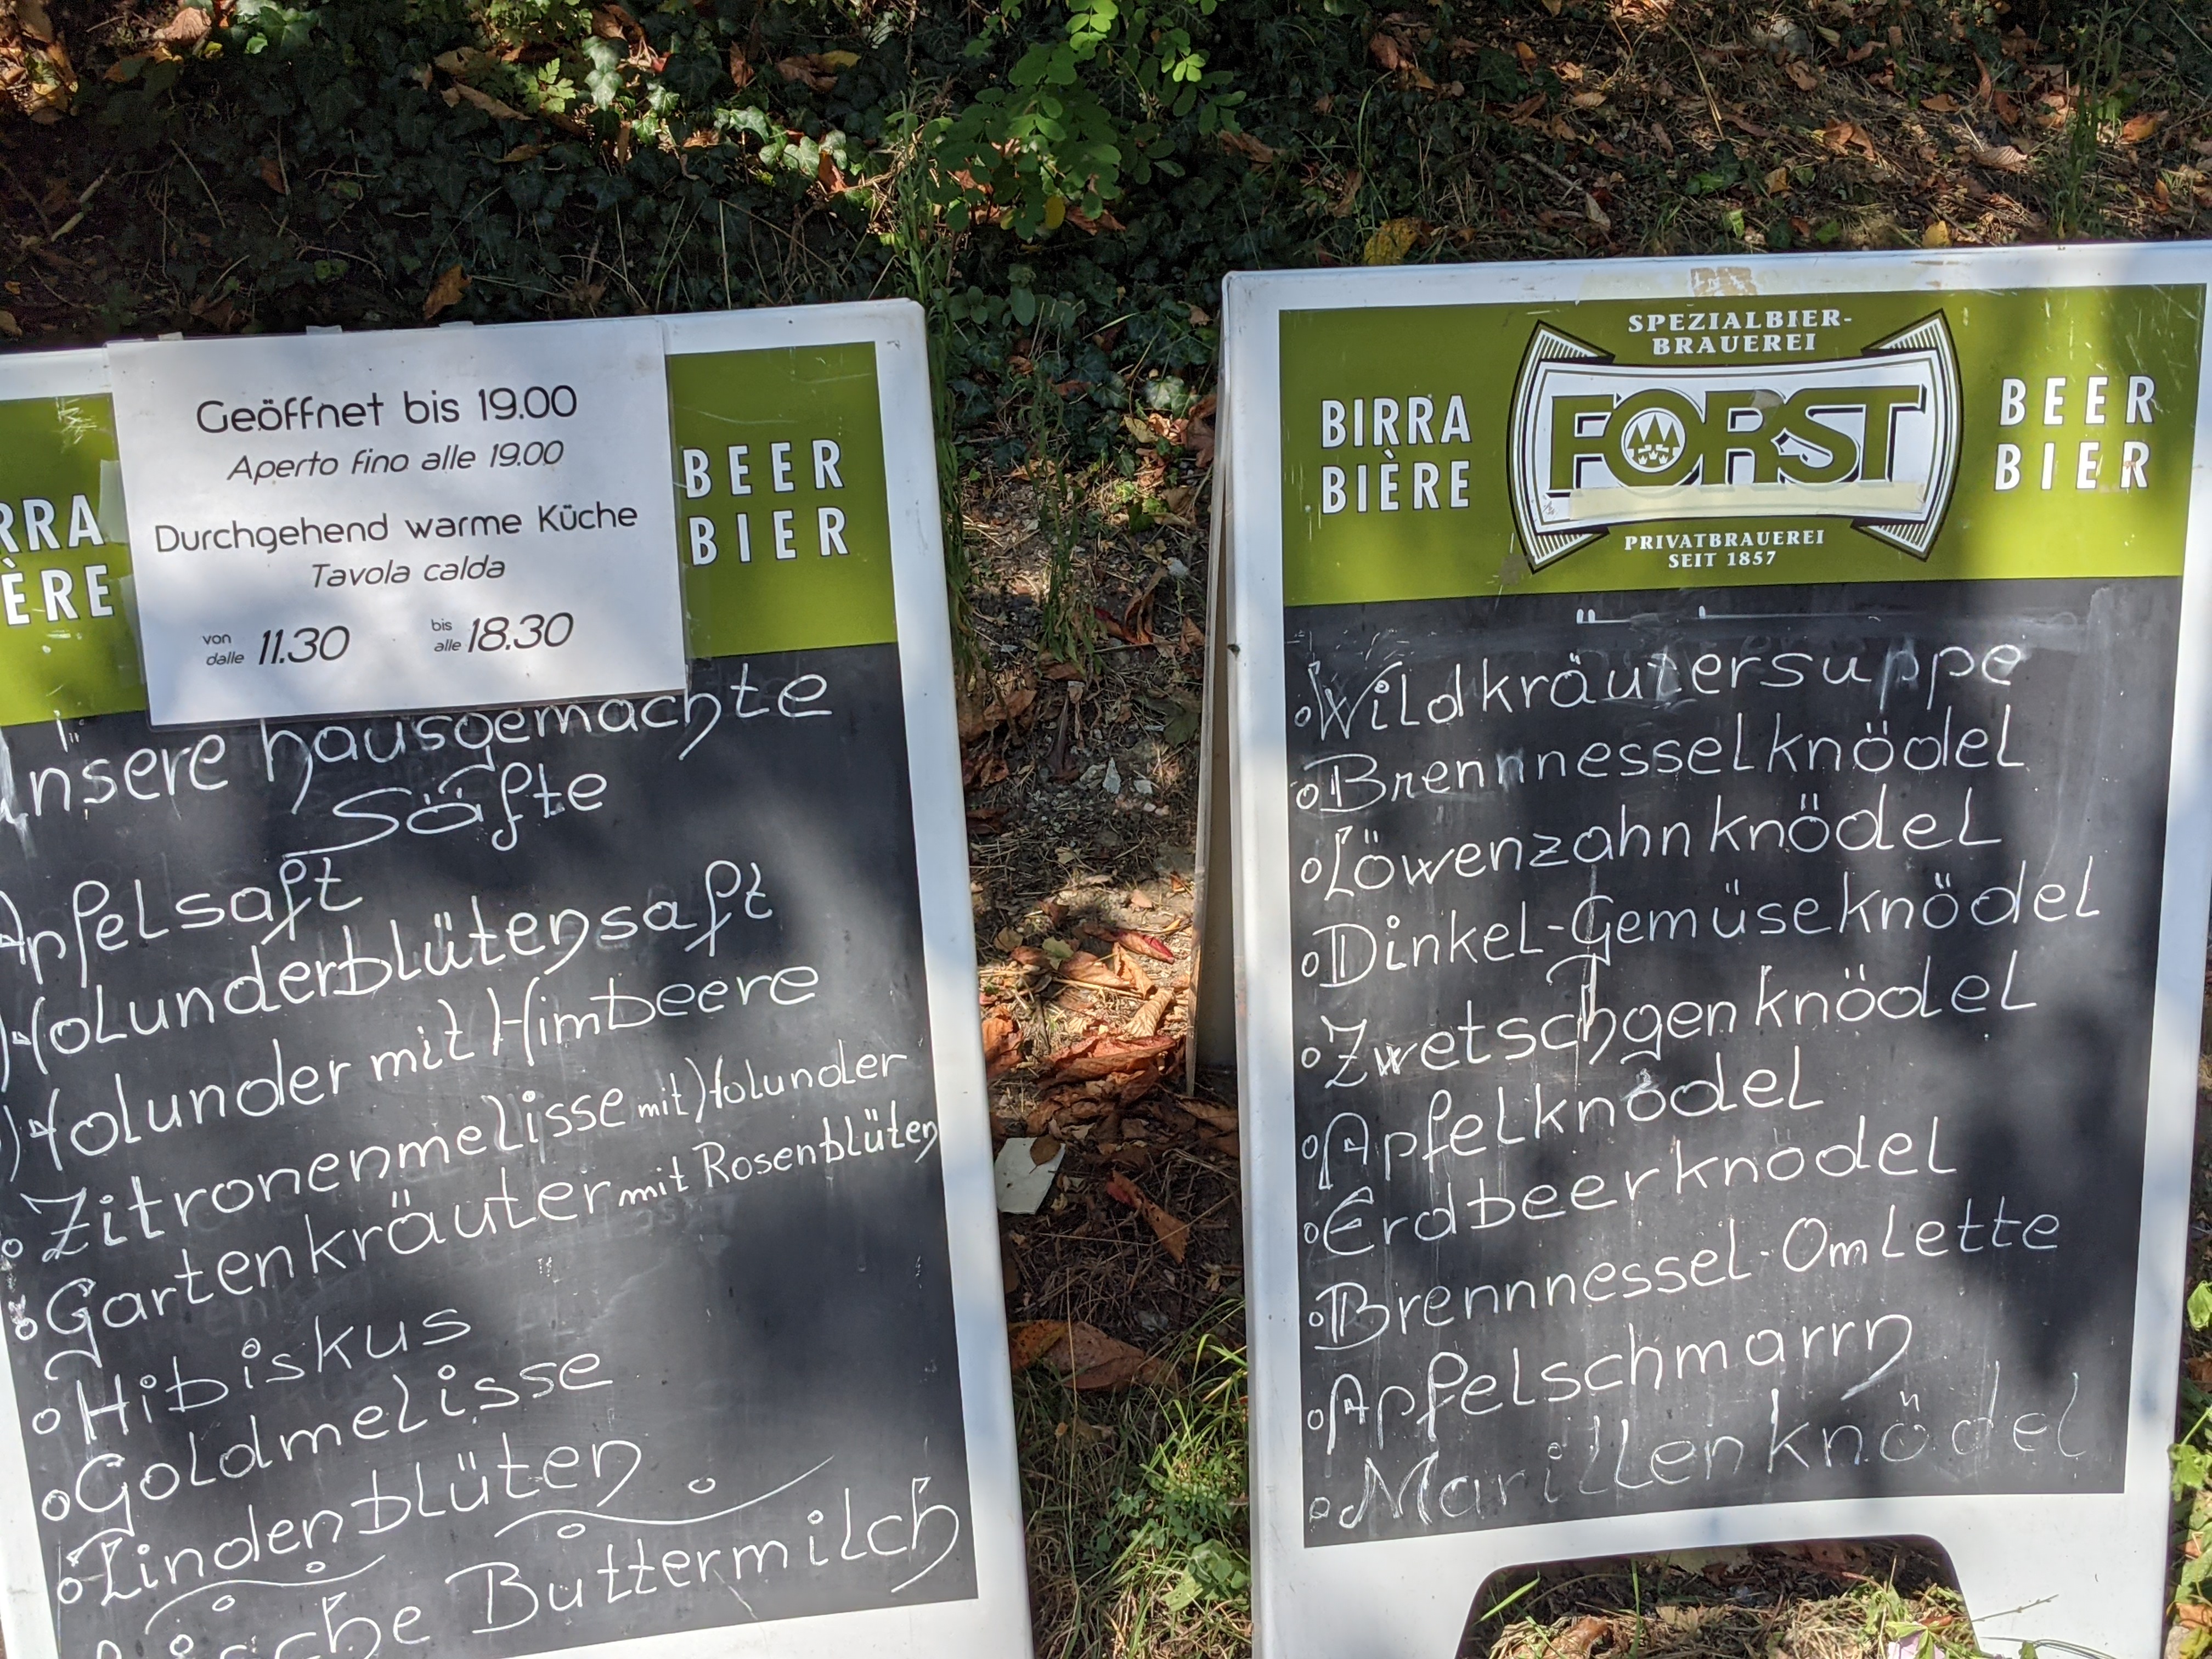 Geöffnet bis 19.00
Aperto fino alle 19.00
Durchgehend warme Küche
Tavola calda
von dalle 11.30 bis alle 18.30
BEER
BIER
Unsere hausgemachte
Säfte
Apfelsaft
Holunderblütensaft
Holunder mit Himbeere
Zitronenmelisse mit Holunder
Gartenkräuter mit Rosenblüten
Hibiskus
Goldmelisse
Lindenblüten
Buttermilch
SPEZIALBIER-
BRAUEREI
BIRRA
BIÈRE
FORST
BEER
BIER
PRIVATBRAUEREI
SEIT 1857
Wildkräutersuppe
Brennnesselknödel
Löwenzahnknödel
Dinkel-Gemüseknödel
Zwetschgenknödel
Apfelknödel
Erdbeerknödel
Brennnessel-Omlette
Apfelschmarrn
Marillenknödel